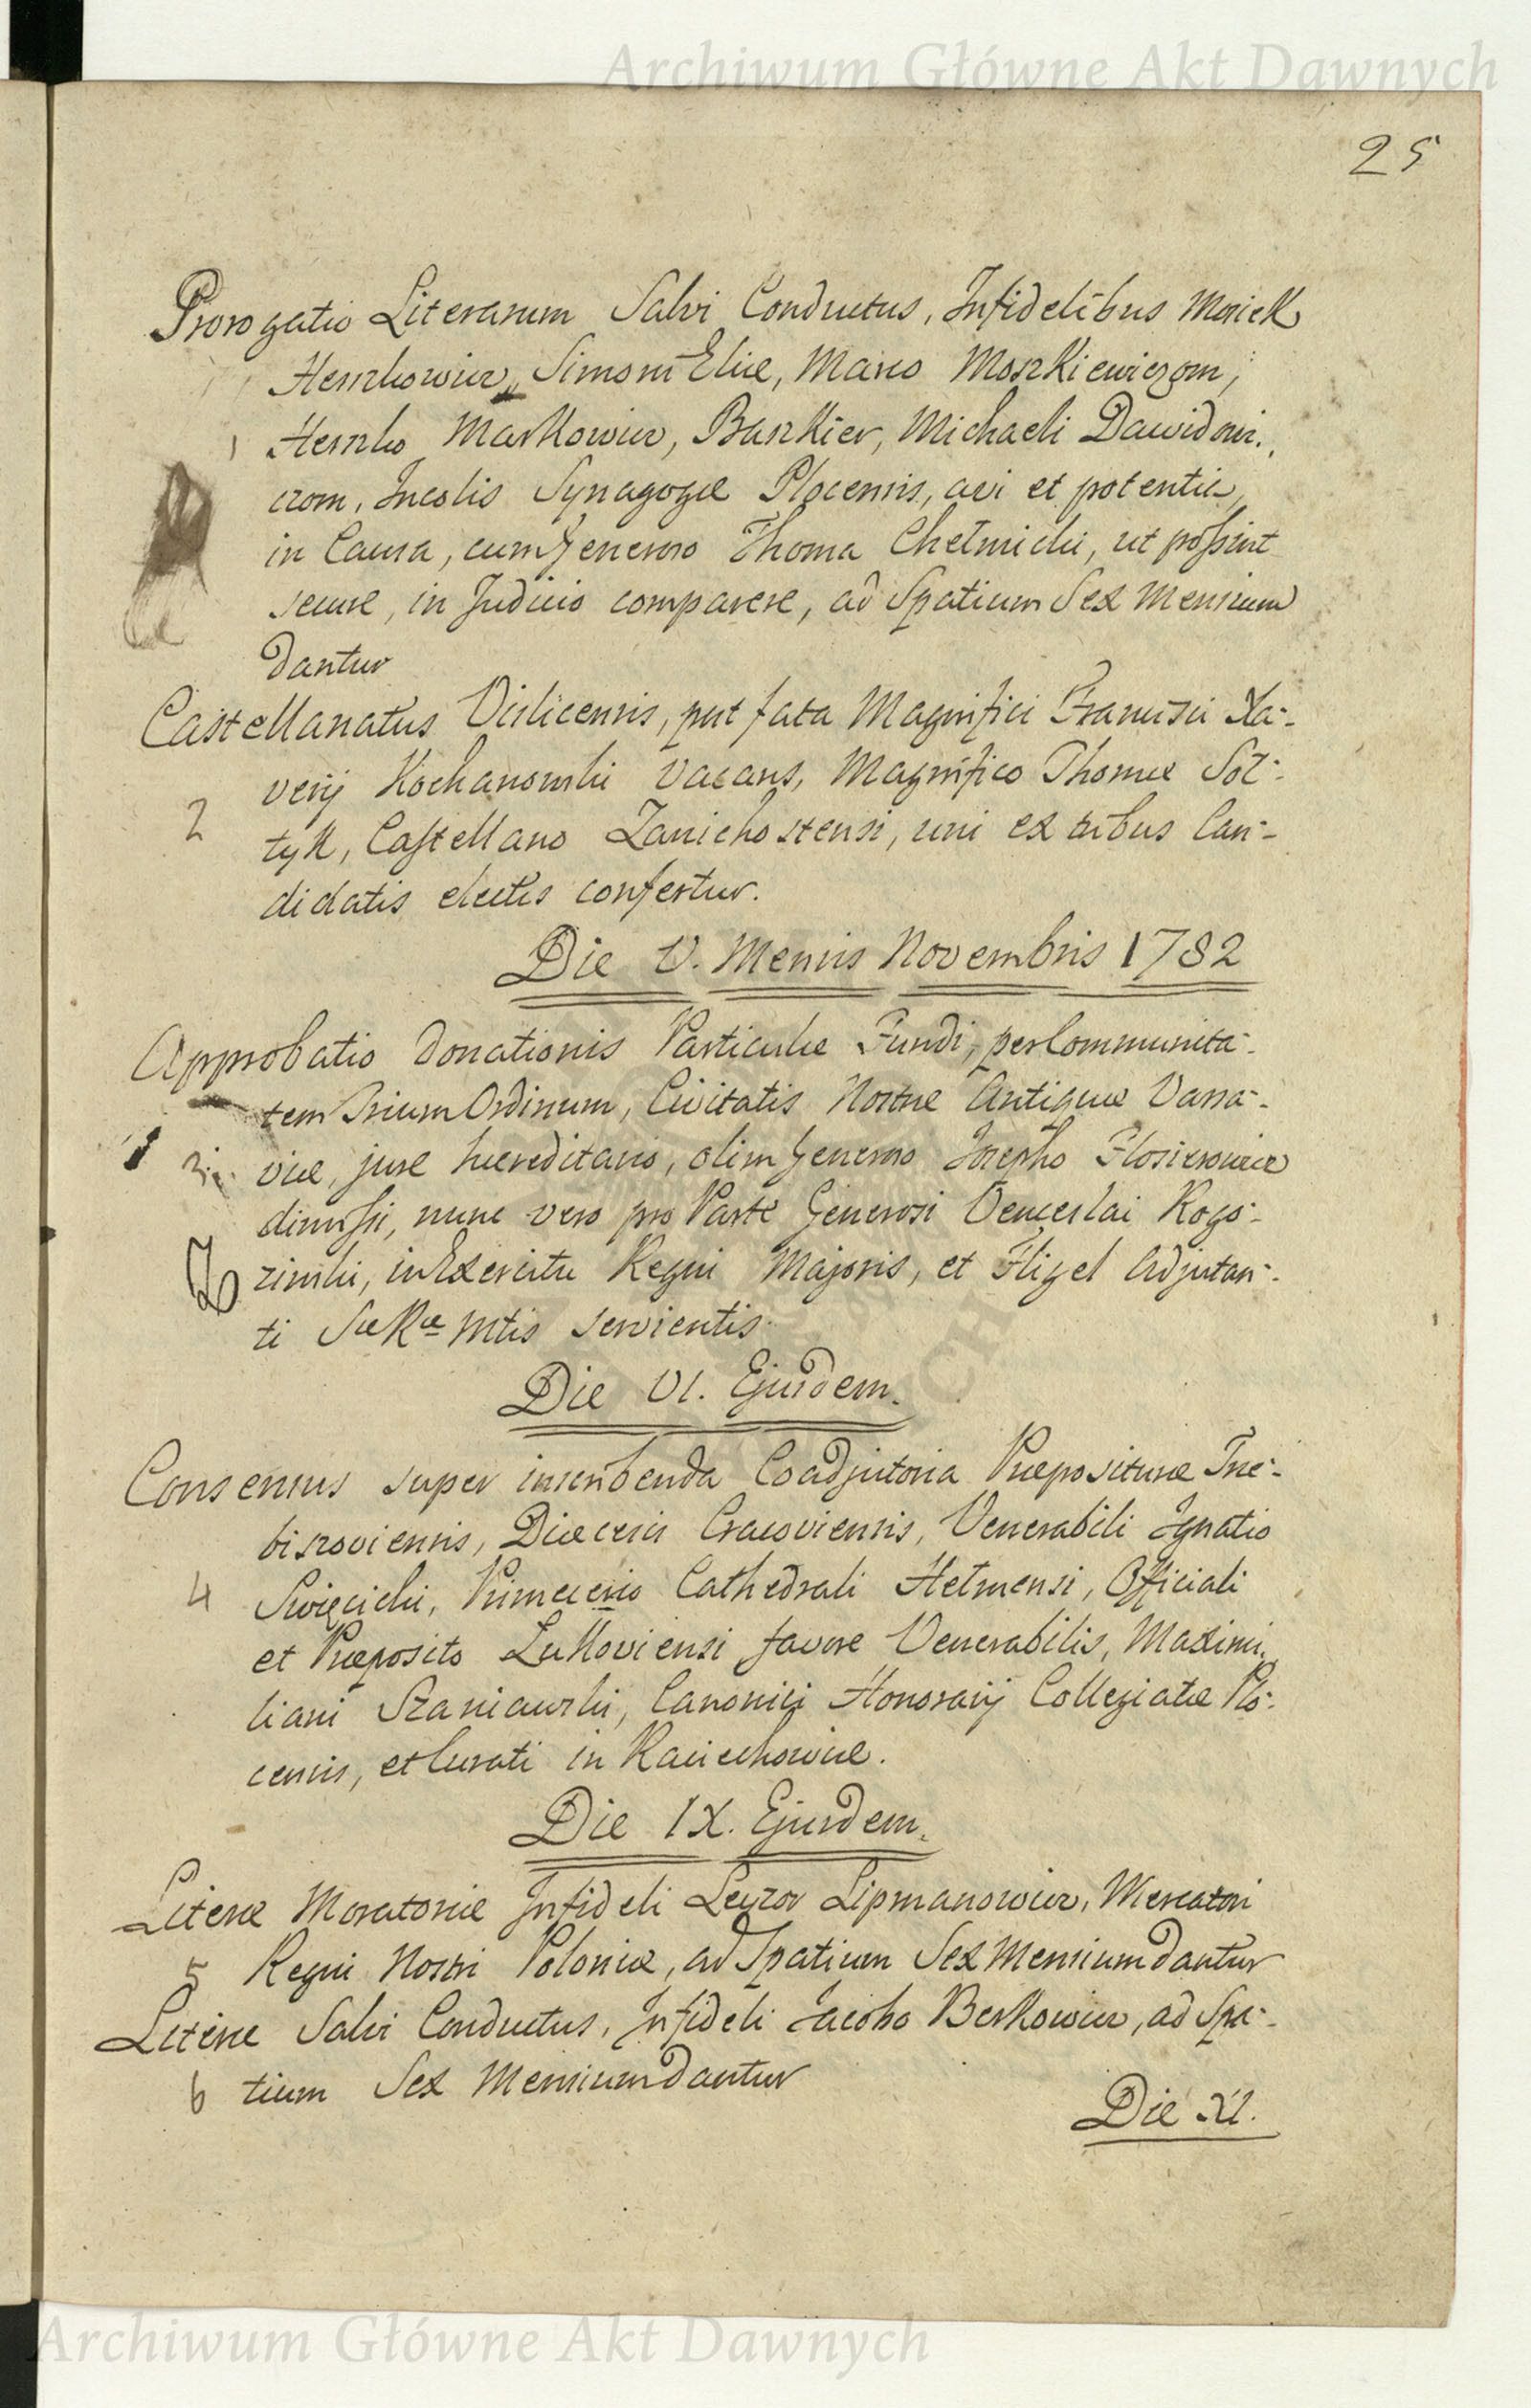 Archiwum Główne Akt Dawnych
25
Prorogatio Literarum Salvi Conductus, Infidelibus Moriek
Herszkowicz, Simoni Eliæ, Marco Moszkiewiczom,
1 Herszko Markowicz, Baszkier, Michaeli Dawidowi-
czom, Incolis Synagogæ Plocensis, aeri et potentia,
in Causa, cum Generoso Thoma Chełmicki, ut possint
secure, in Judicio comparere, ad Spatium Sex Mensium
dantur
Castellanatus Visliciensis, post fata Magnifici Francisci Xa-
verij Kochanowski vacans, Magnifico Thomæ Soł-
2 tyk, Castellano Zanichostensi, uni ex tribus Can-
didatis electis confertur.
Die V. Mensis Novembris 1782
Approbatio Donationis Particulæ Fundi, per Communita-
tem Trium Ordinum, Civitatis Nostræ Antiquæ Varsa-
3 viæ, jure hæreditario, olim Generoso Josepho Flosierowicz
dimissi, nunc vero pro Parte Generosi Venceslai Rogo-
zinski, in Exercitu Regni Majoris, et Fligel Adjutan-
ti Sæ Ræ Mtis servientis
Die VI. Ejusdem.
Consensus super inscribenda Coadjutoria Præpositur​æ Trze-
biszoviensis, Diæcesis Cracoviensis, Venerabili Ignatio
4 Swięcicki, Primicerio Cathedrali Hełmensi, Officiali
et Præposito Lukoviensi favore Venerabilis, Maximi-
liani Szaniawski, Canonici Honorarij Collegiatæ Plo-
censis, et Curati in
Die IX. Ejusdem.
Literæ Moratoriæ Infideli Leyzor Lipmanowicz, Mercatori
5 Regni Nostri Poloniæ, ad Spatium Sex Mensium dantur
Literæ Salvi Conductus, Infideli Jacobo Berkowicz, ad Spa-
6 tium Sex Mensium dantur
Die XI.
Archiwum Główne Akt Dawnych